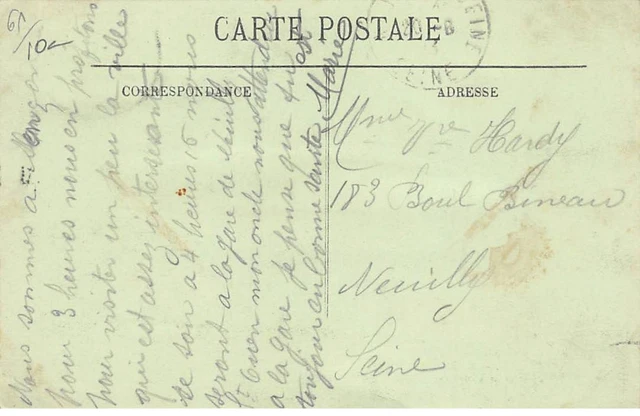 61
10
CARTE POSTALE
CORRESPONDANCE
ADRESSE
SEINE
SEINE
Nous sommes a Alençon
pour 3 heures nous en profitons
pour visiter un peu la ville
qui est assez interessante
ce soir a 4 heures 15 nous
seront a la gare de
mon oncle nous attendra
a la gare je pense que tu es
toujour en bonne santé Marie
Mme Vve Hardy
183 Boul Bineau
Neuilly
Seine